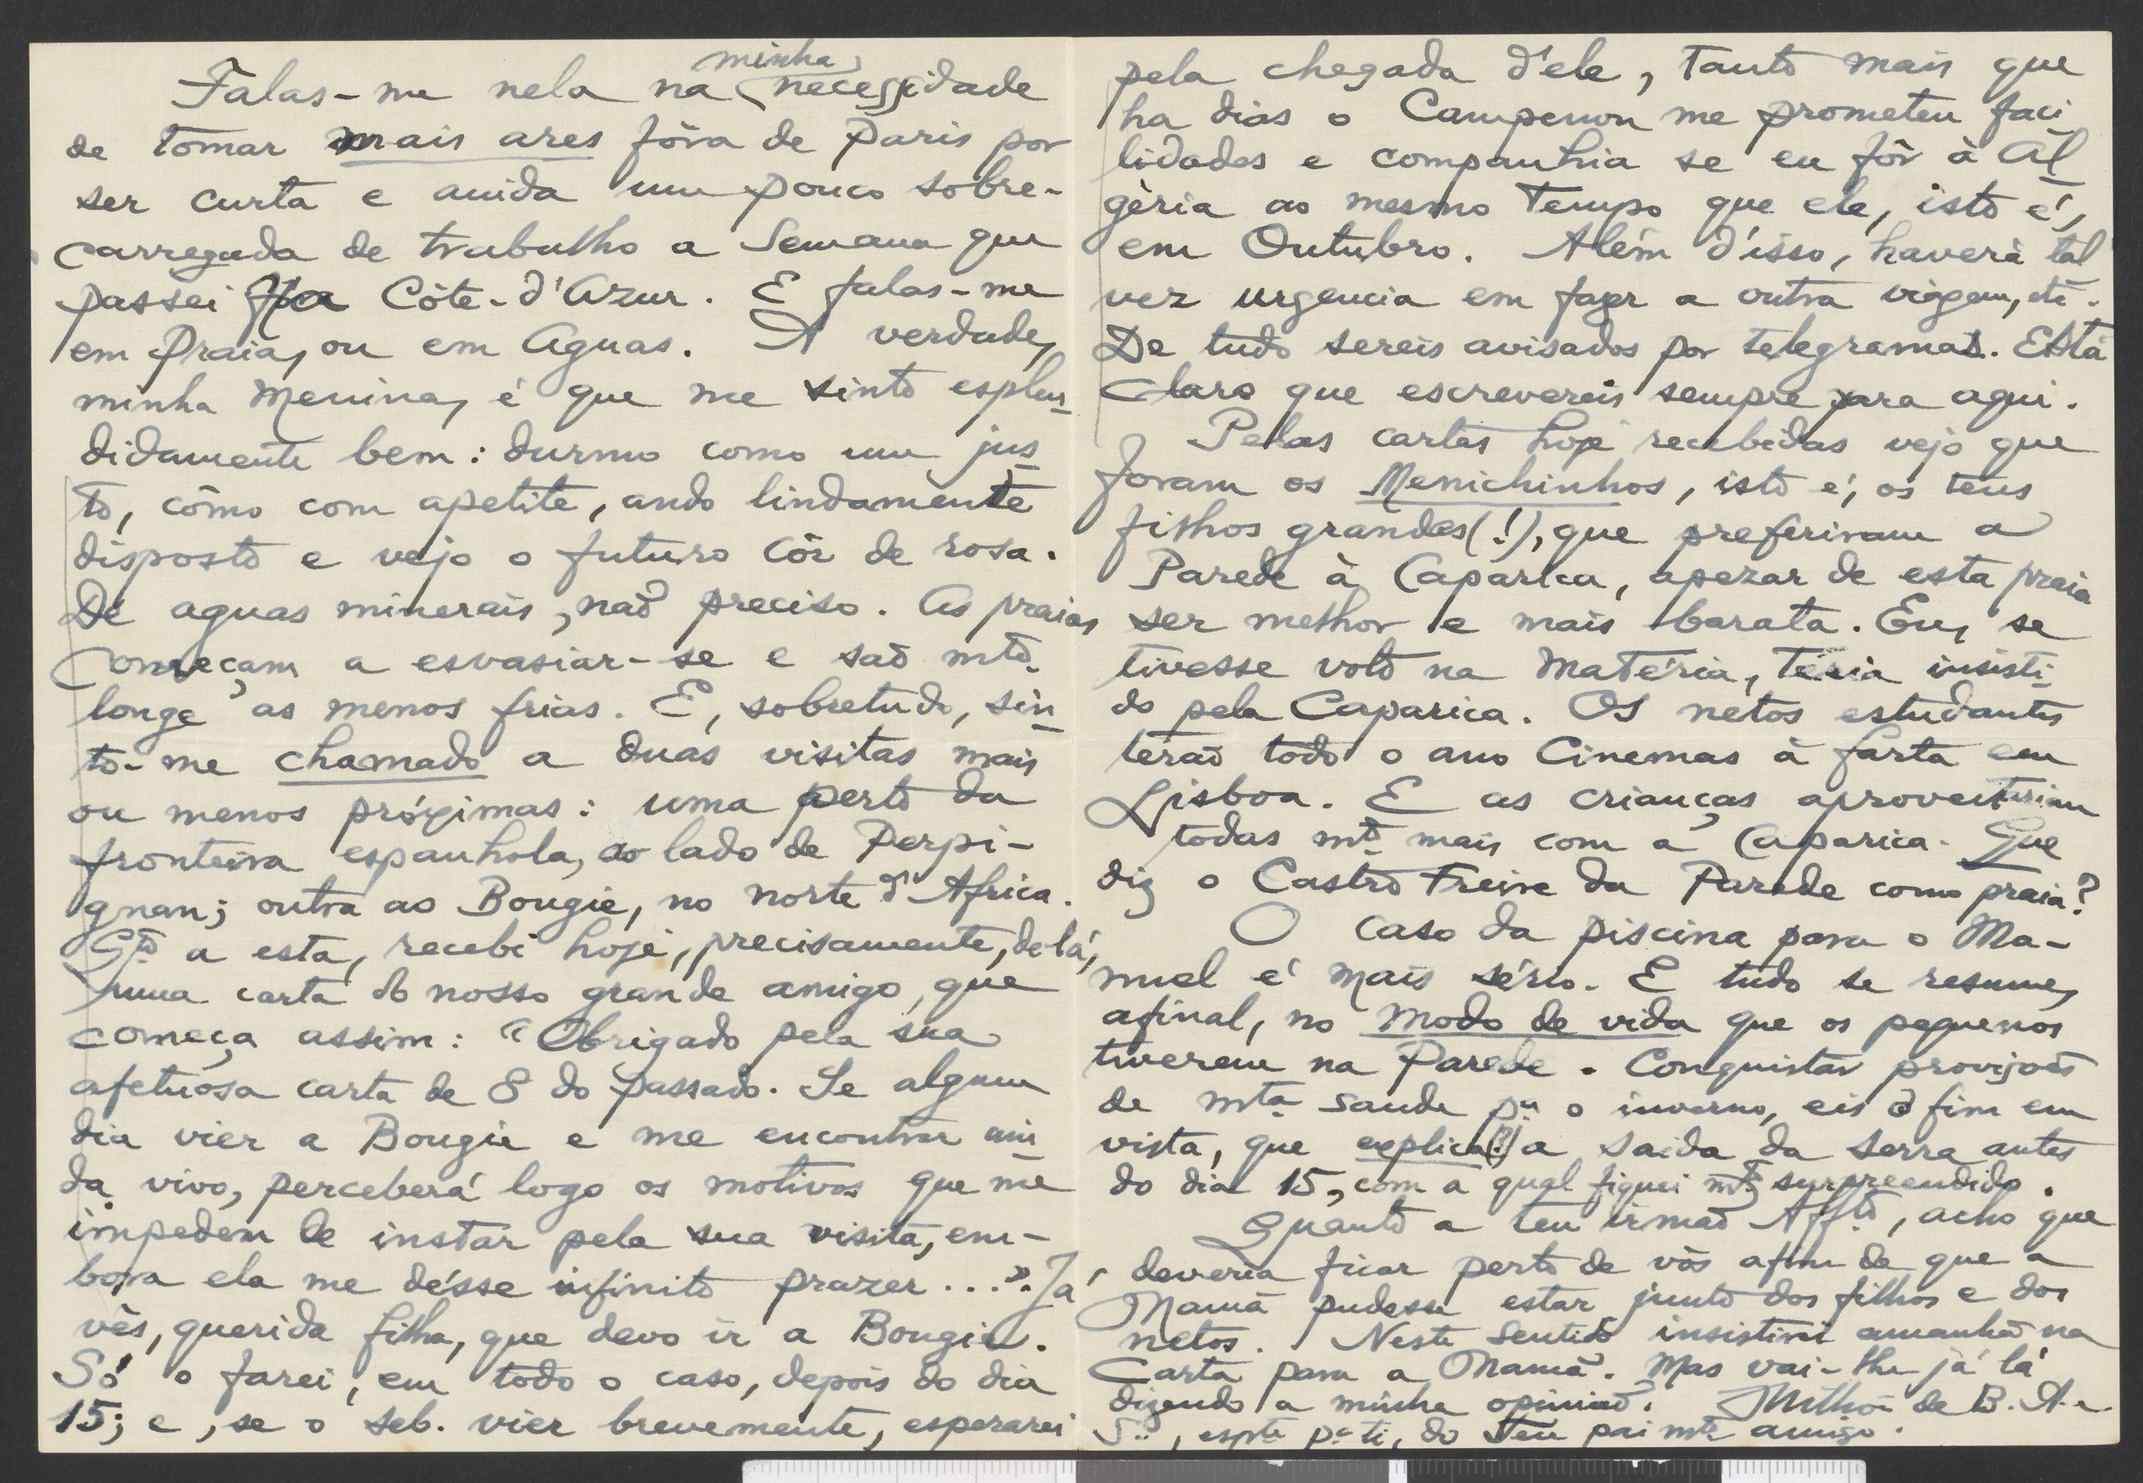 Falas-me nela na minha necessidade
de tomar mais ares fóra de Paris por
ser curta e ainda um pouco sobre-
carregada de trabalho a Semana que
passei na Côte-d'Azur. E falas-me
em Praia, ou em Aguas. A verdade,
minha Menina, é que me sinto esplen-
didamente bem: durmo como um jus-
to, cômo com apetite, ando lindamente
disposto e vejo o futuro côr de rosa.
De aguas minerais, não preciso. As praias
começam a esvasiar-se e são mto.
longe as menos frias. E, sobretudo, sin-
to-me chamado a duas visitas mais
ou menos próximas: uma perto da
fronteira espanhola, ao lado de Perpi-
gnan; outra ao Bougie, no norte d'Africa.
Qto. a esta, recebi hoje, precisamente, de lá,
uma carta do nosso grande amigo, que
começa assim: "Obrigado pela sua
afetuosa carta de 8 do passado. Se algum
dia vier a Bougie e me encontrar ain-
da vivo, perceberá logo os motivos que me
impedem de instar pela sua visita, em-
bora ela me désse infinito prazer...". Já
vês, querida filha, que devo ir a Bougie.
Só o farei, em todo o caso, depois do dia
15; e, se o Seb. vier brevemente, esperarei
pela chegada d'ele, tanto mais que
ha dias o Campenon me prometeu faci-
lidades e companhia se eu fôr à Al-
géria ao mesmo tempo que ele, isto é,
em Outubro. Além d'isso, haverá tal
vez urgencia em fazer a outra viagem, etc.
De tudo sereis avisados por telegramas. Está
claro que escrevereis sempre para aqui.
Pelas cartas hoje recebidas vejo que
foram os Menichinhos, isto é, os teus
filhos grandes(!), que preferiram a
Parede à Caparica, apezar de esta praia
ser melhor e mais barata. Eu, se
tivesse voto na Matéria, teria insisti-
do pela Caparica. Os netos estudantes
terão todo o ano Cinemas à farta em
Lisboa. E as crianças aproveitariam
todas mto. mais com a Caparica. Que
diz o Castro Freire da Parede como praia?
O caso da piscina para o Ma-
nuel é mais sério. E tudo se resume,
afinal, no modo de vida que os pequenos
tiverem na Parede. Conquistar provisões
de mta. saude pa. o inverno, eis o fim em
vista, que explica(?) a saida da serra antes
do dia 15, com a qual fiquei mto. surpreendido.
Quanto a teu irmão Affto., acho que
deveria ficar perto de vós afim de que a
Mamã pudesse estar junto dos filhos e dos
netos. Neste sentido insistirei amanhã na
Carta para a Mamã. Mas vai-lhe já lá
dizendo a minha opinião. Milhão de B. A. e
S.., espte. pa. ti, do teu pai mto. amigo.